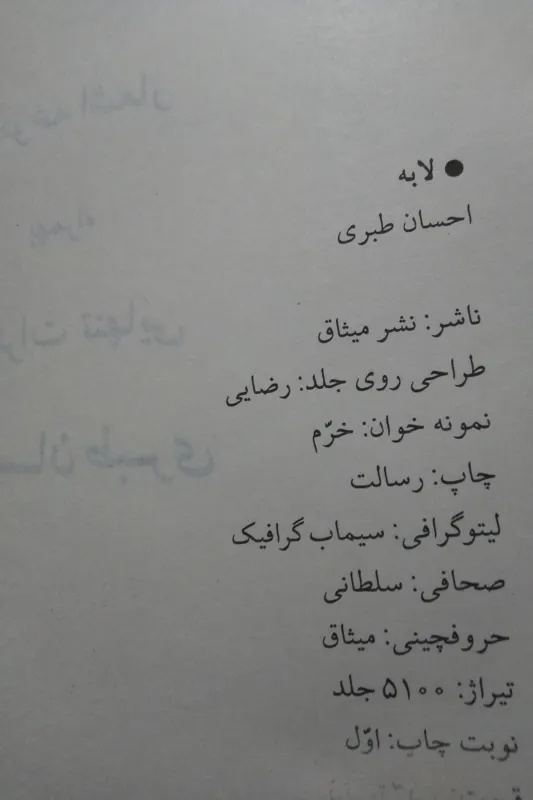 ● لابه
احسان طبری
ناشر: نشر میثاق
طراحی روی جلد: رضایی
نمونه خوان: خرّم
چاپ: رسالت
لیتوگرافی: سیماب گرافیک
صحافی: سلطانی
حروفچینی: میثاق
تیراژ: ۵۱۰۰ جلد
نوبت چاپ: اوّل